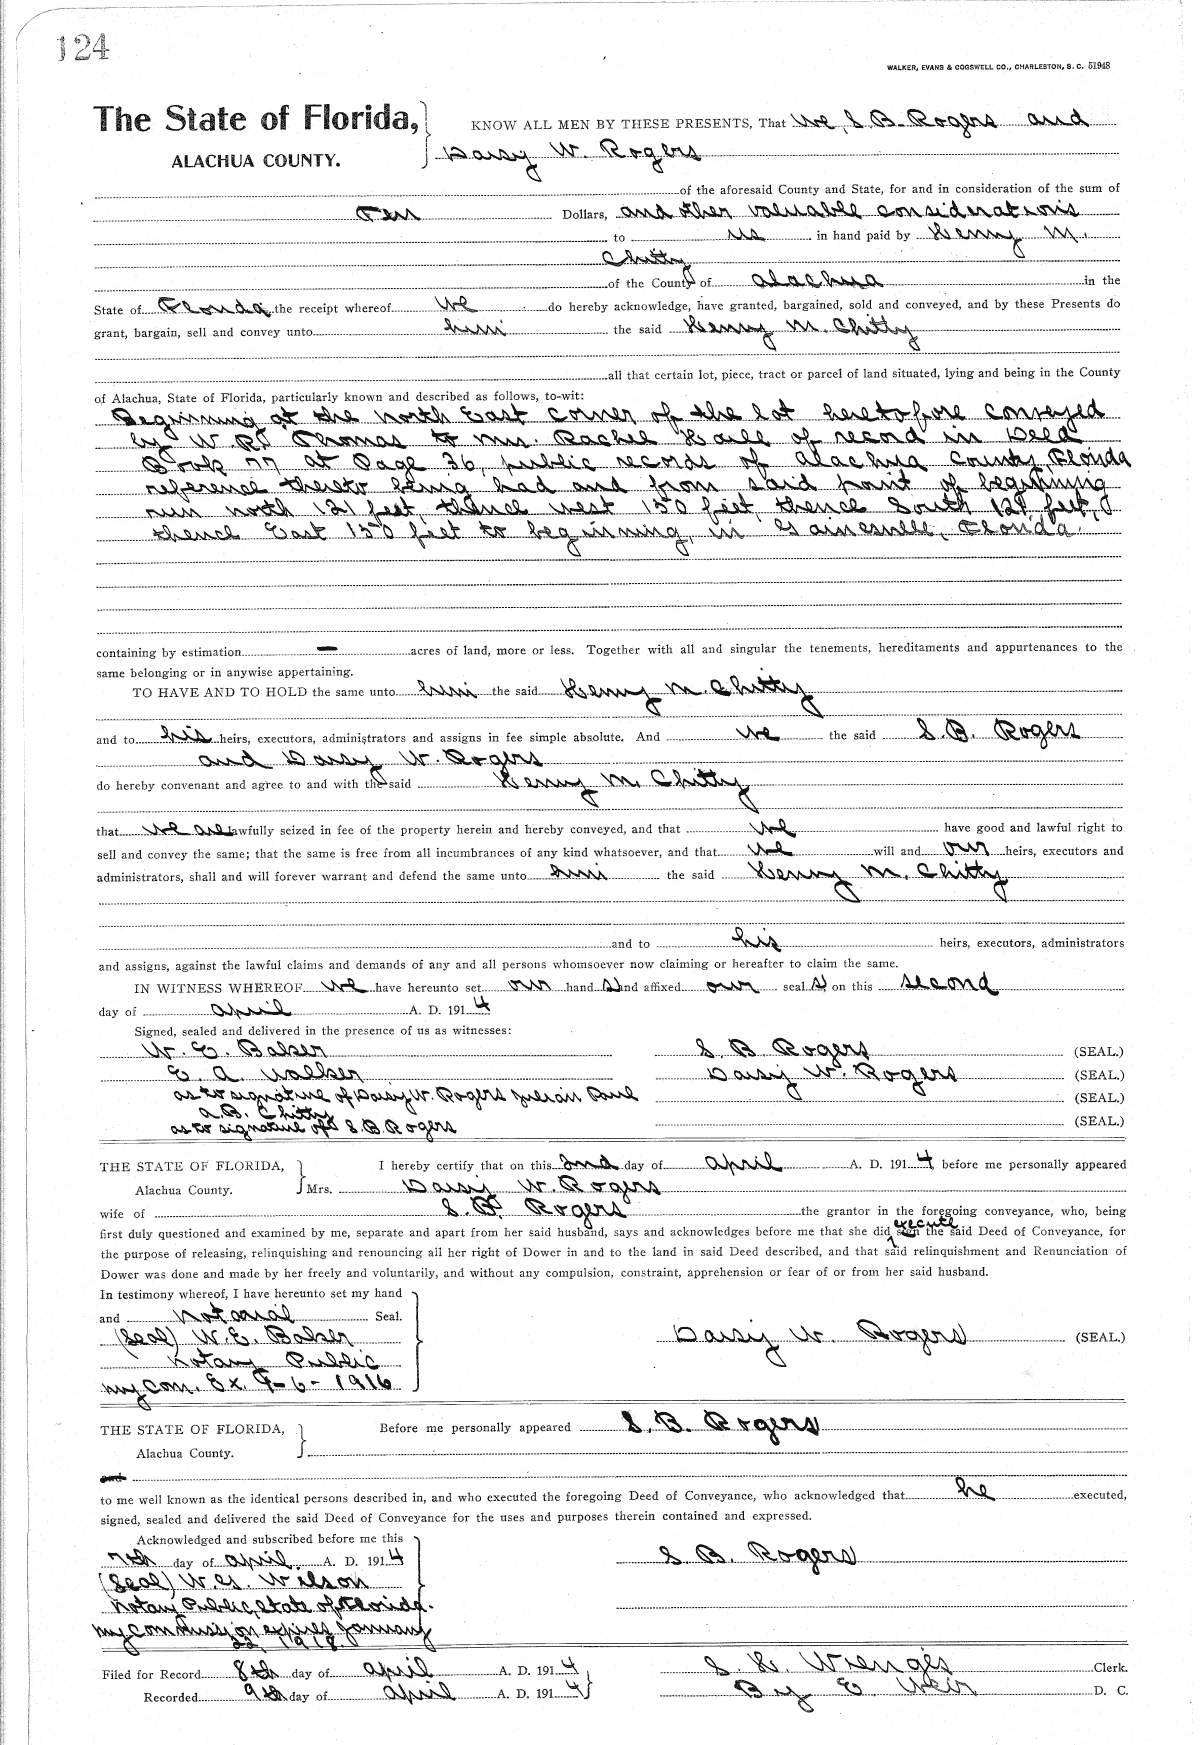 124
WALKER, EVANS & COGSWELL CO., CHARLESTON, S. C. 51948
The State of Florida, KNOW ALL MEN BY THESE PRESENTS, That We, S. B. Rogers and
ALACHUA COUNTY. Daisy W. Rogers
of the aforesaid County and State, for and in consideration of the sum of
Ten Dollars, and other valuable considerations
to us in hand paid by Henry M.
Chitty
of the County of Alachua in the
State of Florida the receipt whereof we do hereby acknowledge, have granted, bargained, sold and conveyed, and by these Presents do
grant, bargain, sell and convey unto him the said Henry M. Chitty
all that certain lot, piece, tract or parcel of land situated, lying and being in the County
of Alachua, State of Florida, particularly known and described as follows, to-wit:
Beginning at the North East corner of the lot heretofore conveyed
by W. R. Thomas to Mrs. Rachel Haile of record in Deed
Book 77 at Page 36, public records of Alachua County, Florida
reference thereto being had and from said point of beginning
run north 121 feet, thence west 150 feet, thence South 121 feet,
thence East 150 feet to beginning, in Gainesville, Florida.
containing by estimation — acres of land, more or less. Together with all and singular the tenements, hereditaments and appurtenances to the
same belonging or in anywise appertaining.
TO HAVE AND TO HOLD the same unto him the said Henry M. Chitty
and to his heirs, executors, administrators and assigns in fee simple absolute. And we the said S. B. Rogers
and Daisy W. Rogers
do hereby convenant and agree to and with the said Henry M. Chitty
that we are lawfully seized in fee of the property herein and hereby conveyed, and that we have good and lawful right to
sell and convey the same; that the same is free from all incumbrances of any kind whatsoever, and that we will and our heirs, executors and
administrators, shall and will forever warrant and defend the same unto him the said Henry M. Chitty
and to his heirs, executors, administrators
and assigns, against the lawful claims and demands of any and all persons whomsoever now claiming or hereafter to claim the same.
IN WITNESS WHEREOF we have hereunto set our hand s and affixed our seal s on this second
day of April A. D. 1914
Signed, sealed and delivered in the presence of us as witnesses:
W. E. Baker S. B. Rogers (SEAL.)
E. A. Walker Daisy W. Rogers (SEAL.)
as to signature of Daisy W. Rogers Julian Paul (SEAL.)
A. B. Chitty
as to signature of S. B. Rogers (SEAL.)
THE STATE OF FLORIDA, I hereby certify that on this 2nd day of April A. D. 1914 before me personally appeared
Alachua County. Mrs. Daisy W. Rogers
wife of S. B. Rogers the grantor in the foregoing conveyance, who, being
first duly questioned and examined by me, separate and apart from her said husband, says and acknowledges before me that she did execute the said Deed of Conveyance, for
the purpose of releasing, relinquishing and renouncing all her right of Dower in and to the land in said Deed described, and that said relinquishment and Renunciation of
Dower was done and made by her freely and voluntarily, and without any compulsion, constraint, apprehension or fear of or from her said husband.
In testimony whereof, I have hereunto set my hand
and Notarial Seal.
(Seal) W. E. Baker Daisy W. Rogers (SEAL.)
Notary Public
my Com. Ex. 9-6-1916
THE STATE OF FLORIDA, Before me personally appeared S. B. Rogers
Alachua County.
and
to me well known as the identical persons described in, and who executed the foregoing Deed of Conveyance, who acknowledged that he executed,
signed, sealed and delivered the said Deed of Conveyance for the uses and purposes therein contained and expressed.
Acknowledged and subscribed before me this
7th day of April A. D. 1914 S. B. Rogers
(Seal) W. G. Wilson
Notary Public, State of Florida.
my commission expires January
22 1918.
Filed for Record 8th day of April A. D. 1914 S. H. Wienges Clerk.
Recorded 9th day of April A. D. 1914 By E Weir D. C.